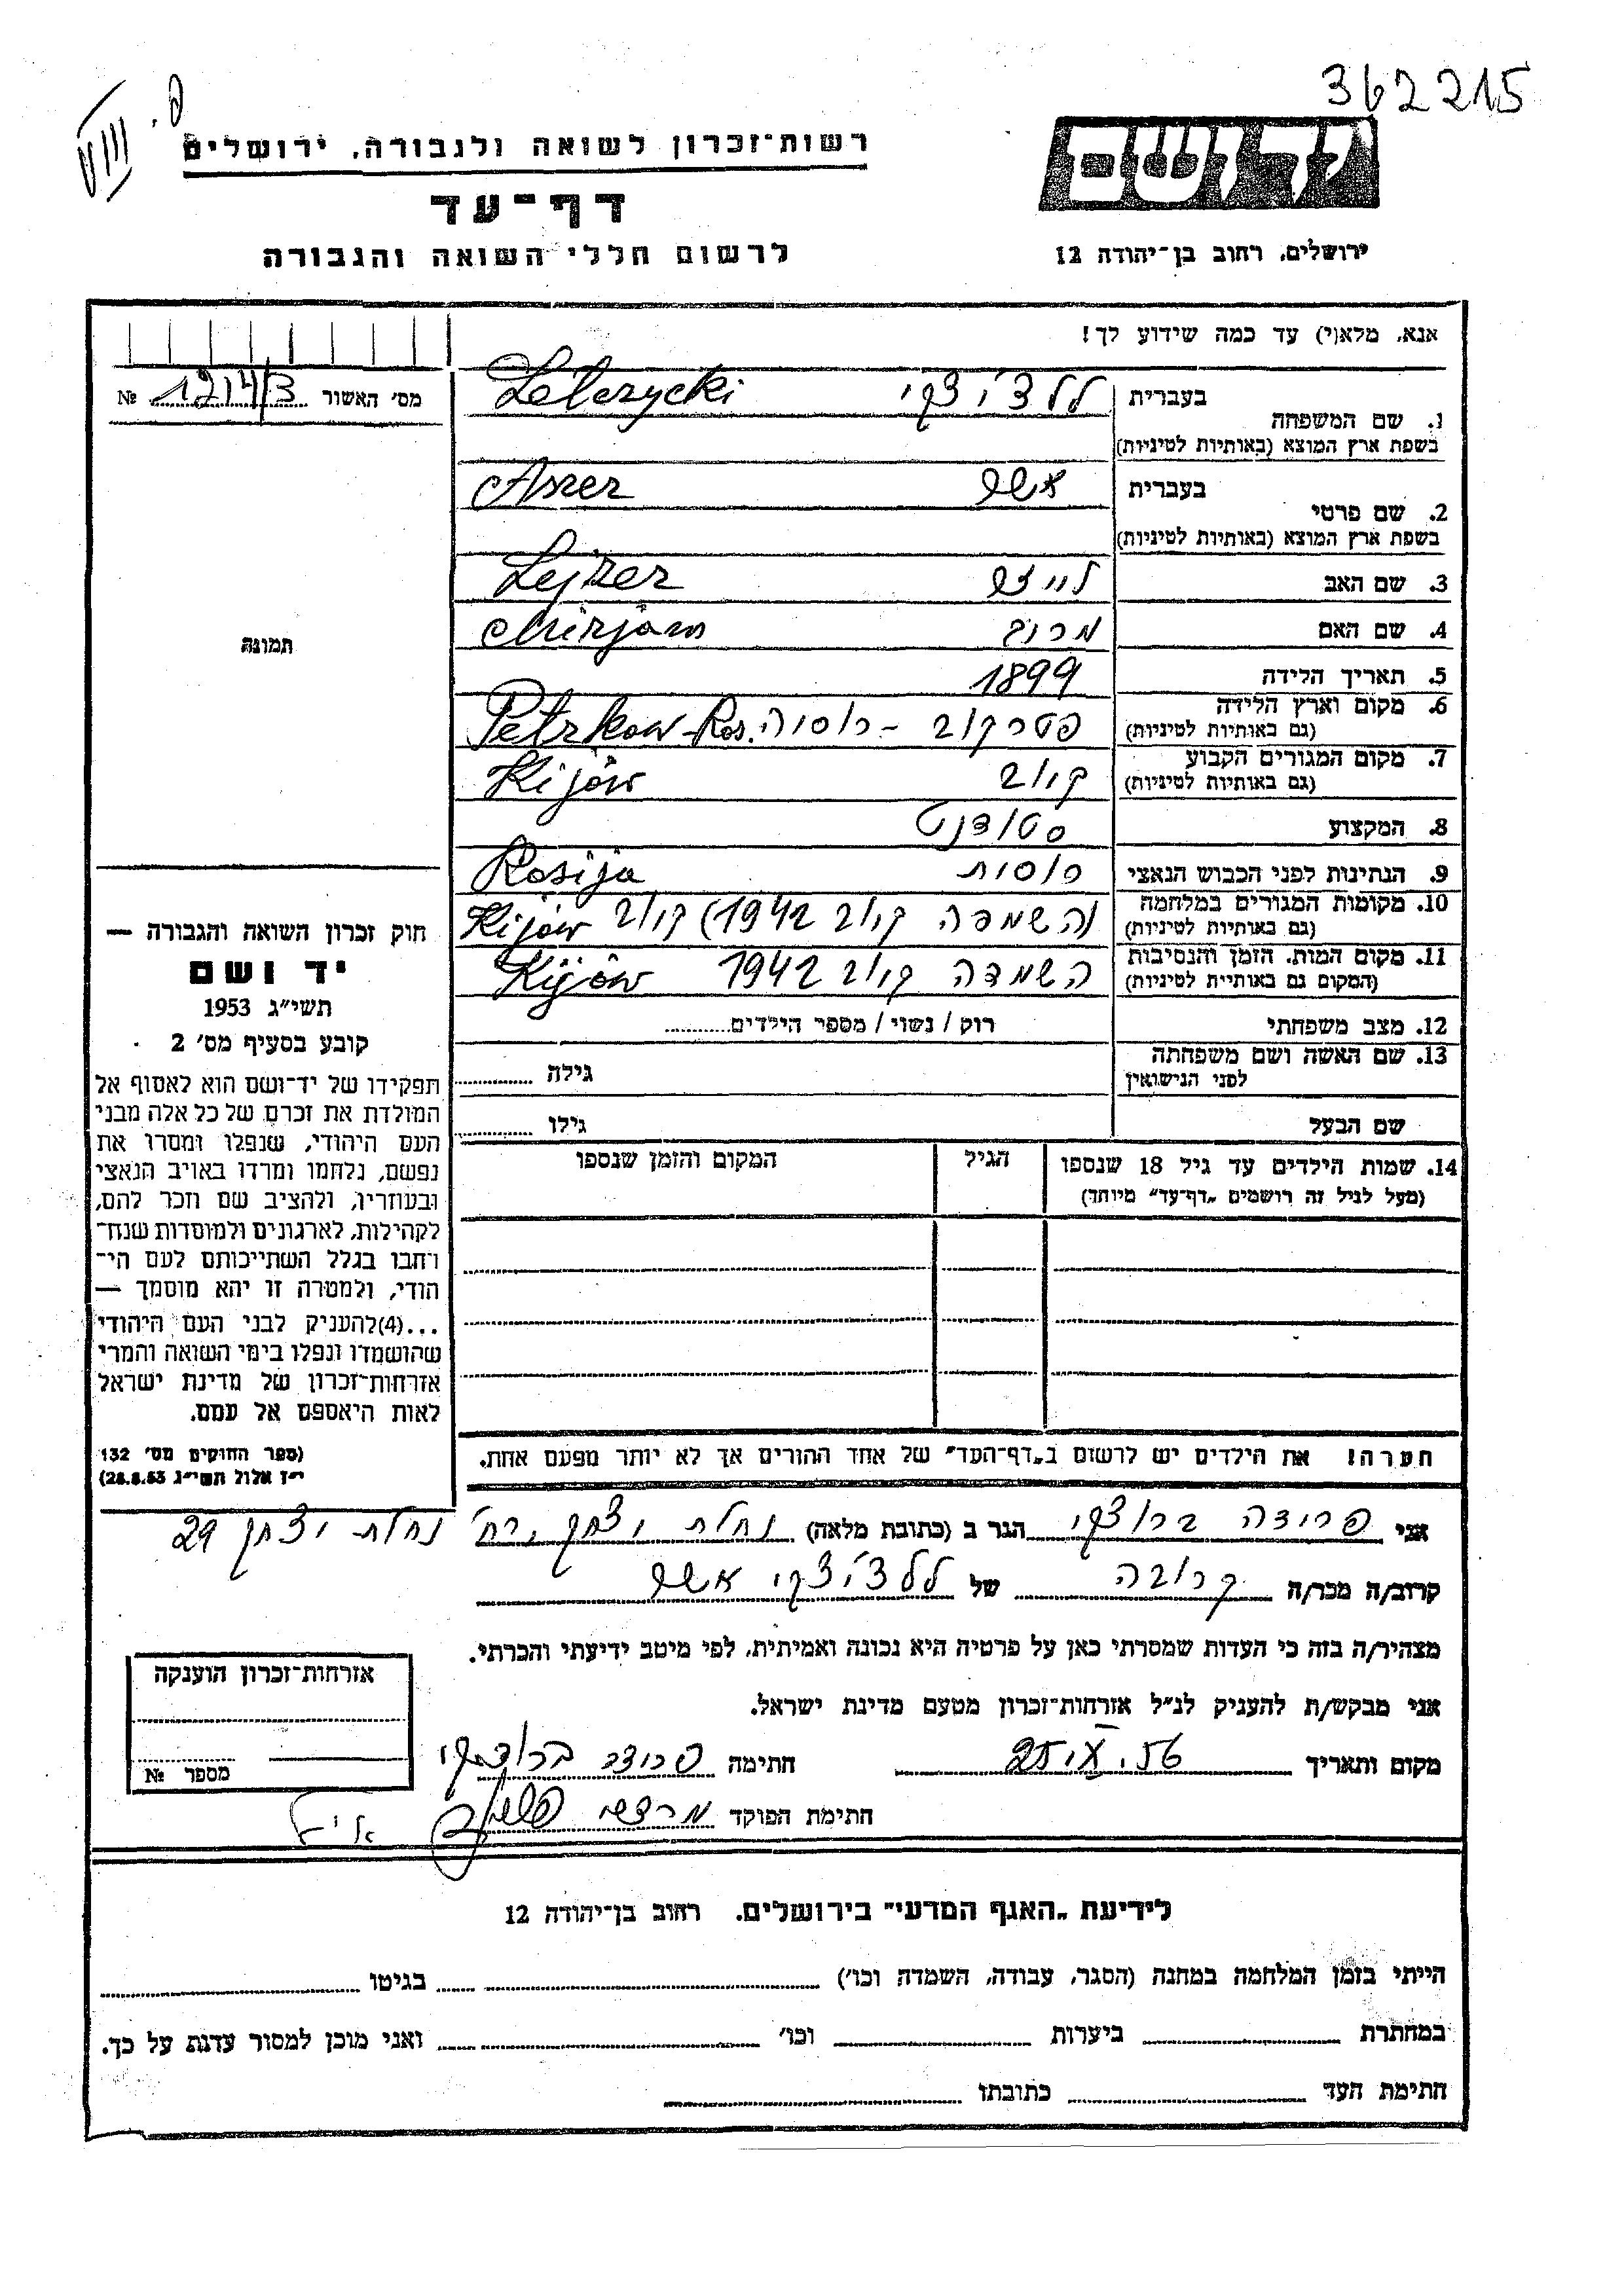 362215
VIII . פ
רשות־זכרון לשואה ולגבורה, ירושלים
דף־עד
לרשום חללי השואה והגבורה
יד ושם
ירושלים, רחוב בן־יהודה 12
אנא, מלא(י) עד כמה שידוע לך!
מס׳ האשור 1214/3 №
תמונה
1. שם המשפחה בעברית ללצ'יצקי Lelczycki
בשפת ארץ המוצא (באותיות לטיניות)
2. שם פרטי בעברית אשר Aszer
בשפת ארץ המוצא (באותיות לטיניות)
3. שם האב לייזר Lejzer
4. שם האם מרים Mirjam
5. תאריך הלידה 1899
6. מקום וארץ הלידה פטרקוב - רוסיה Petrkow-Ros.
(גם באותיות לטיניות)
7. מקום המגורים הקבוע קיוב Kijów
(גם באותיות לטיניות)
8. המקצוע סטודנט
9. הנתינות לפני הכבוש הנאצי רוסית Rosija
10. מקומות המגורים במלחמה (השמדה קיוב 1942) קיוב Kijów
(גם באותיות לטיניות)
11. מקום המות, הזמן והנסיבות השמדה קיוב 1942 Kijów
(המקום גם באותיות לטיניות)
12. מצב משפחתי רוק / נשוי / מספר הילדים
13. שם האשה ושם משפחתה גילה
לפני הנישואין
שם הבעל גילו
14. שמות הילדים עד גיל 18 שנספו הגיל המקום והזמן שנספו
(מעל לגיל זה רושמים „דף־עד” מיוחד)
הערה! את הילדים יש לרשום ב„דף־העד” של אחד ההורים אך לא יותר מפעם אחת.
חוק זכרון השואה והגבורה —
יד ושם
תשי״ג 1953
קובע בסעיף מס׳ 2
תפקידו של יד־ושם הוא לאסוף אל
המולדת את זכרם של כל אלה מבני
העם היהודי, שנפלו ומסרו את
נפשם, נלחמו ומרדו באויב הנאצי
ובעוזריו, ולהציב שם וזכר להם,
לקהילות, לארגונים ולמוסדות שנח־
רבו בגלל השתייכותם לעם הי־
הודי, ולמטרה זו יהא מוסמך —
...(4)להעניק לבני העם היהודי
שהושמדו ונפלו בימי השואה והמרי
אזרחות־זכרון של מדינת ישראל
לאות היאספם אל עמם.
(ספר החוקים מס׳ 132
י״ז אלול תשי״ג 28.8.53)
אני פרידה ברוצקי הגר ב (כתובת מלאה) נחלת יצחק, רח' נחלת יצחק 29
קרוב/ה מכר/ה קרובה של ללצ'יצקי אשר
מצהיר/ה בזה כי העדות שמסרתי כאן על פרטיה היא נכונה ואמיתית, לפי מיטב ידיעתי והכרתי.
אני מבקש/ת להעניק לנ״ל אזרחות־זכרון מטעם מדינת ישראל.
מקום ותאריך חתימה פרידה ברוצקי
חתימת הפוקד
אזרחות־זכרון הוענקה
מספר №
לידיעת „האגף המדעי” בירושלים, רחוב בן־יהודה 12
הייתי בזמן המלחמה במחנה (הסגר, עבודה, השמדה וכו׳) בגיטו
במחתרת ביערות וכו׳ ואני מוכן למסור עדות על כך.
חתימת העד כתובתו